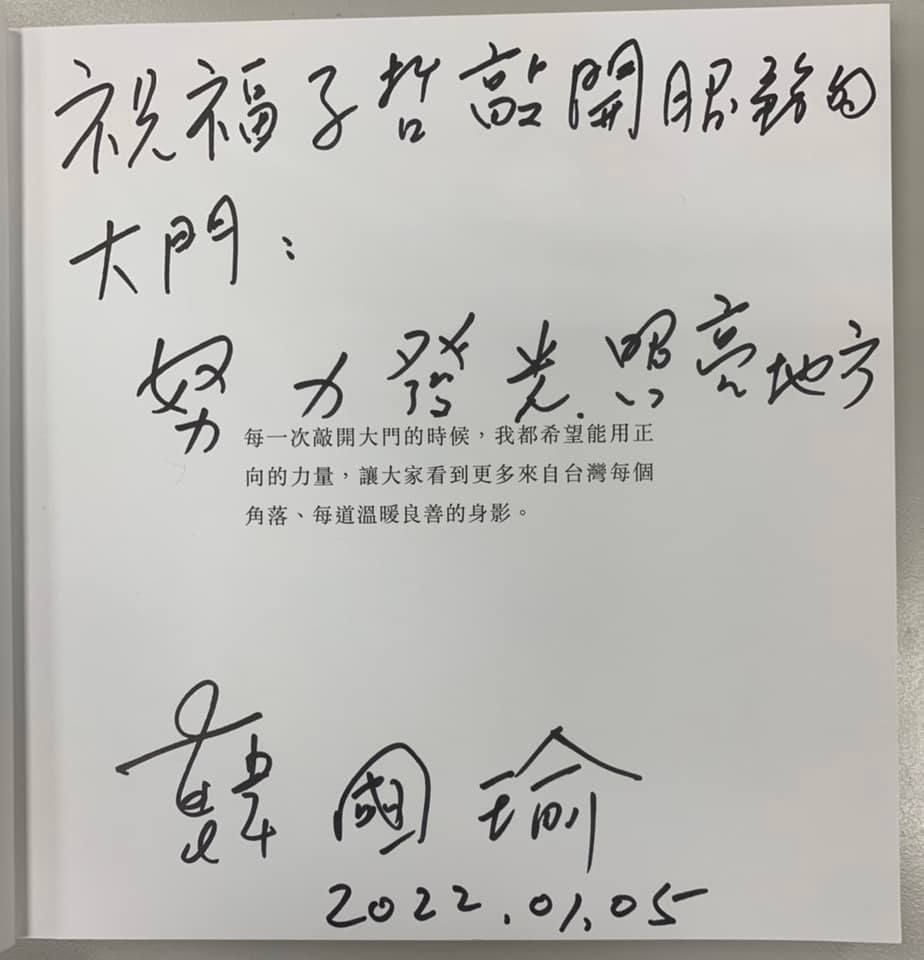 祝福子哲敲開服務的
大門：
努力發光.照亮地方
每一次敲開大門的時候，我都希望能用正
向的力量，讓大家看到更多來自台灣每個
角落、每道溫暖良善的身影。
韓國瑜
2022.01.05